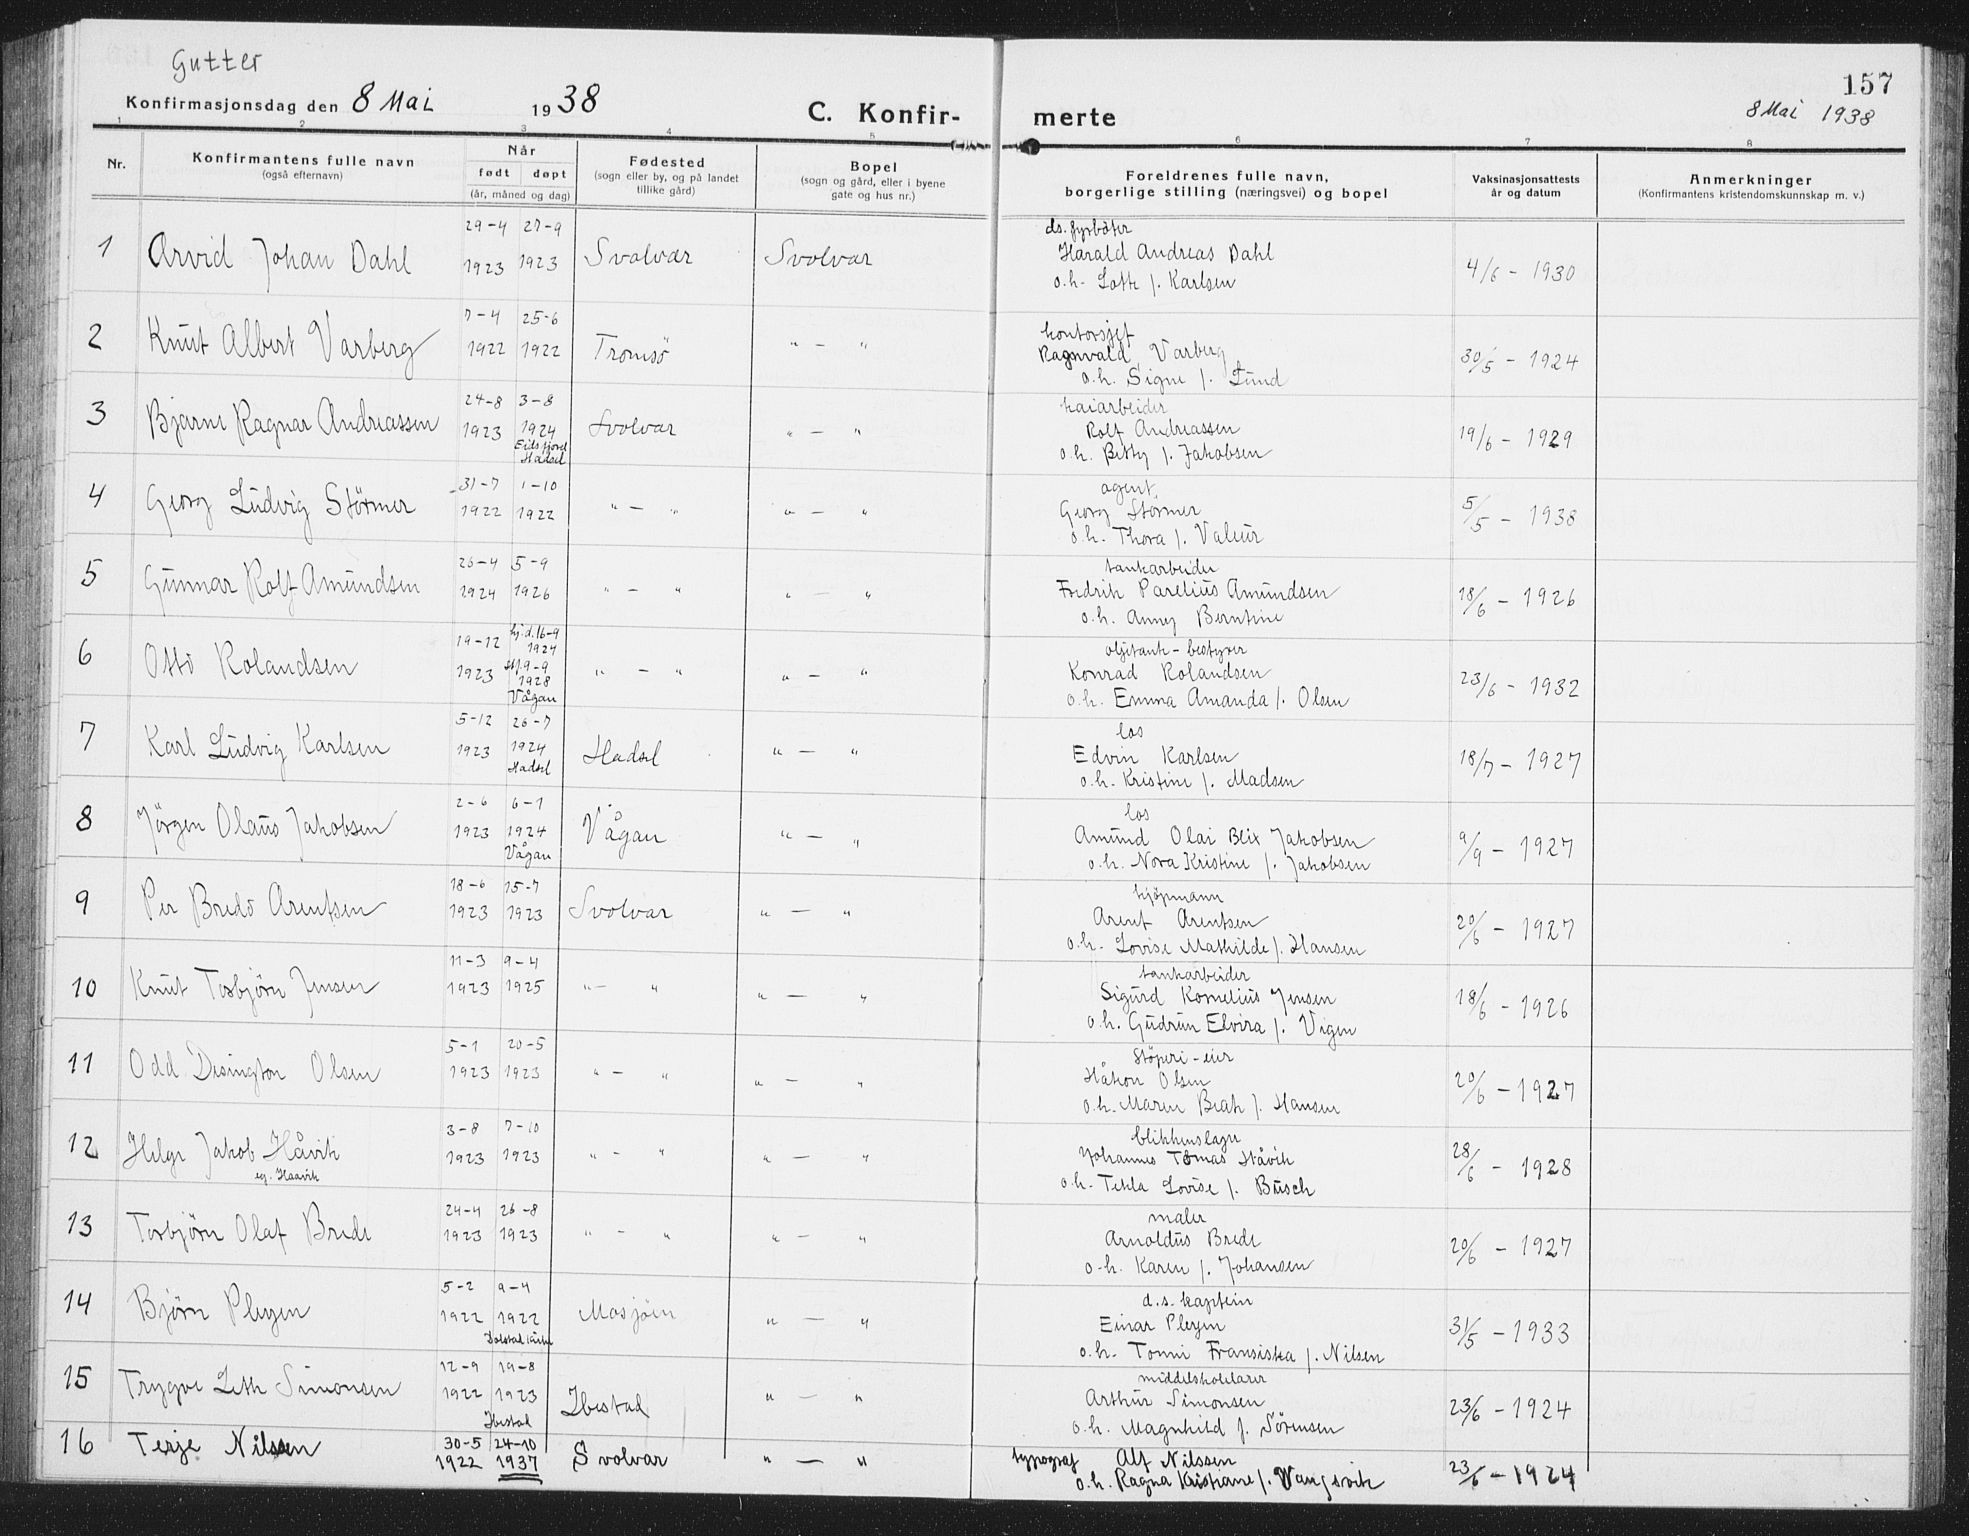 Gutter
157
Konfirmasjonsdag den 8 Mai 1938
C. Konfir-
merte
8 Mai 1938
1 2 3 4 5 6 7 8
Nr.
Konfirmantens fulle navn
(også efternavn)
Når
født døpt
(år, måned og dag)
Fødested
(sogn eller by, og på landet
tillike gård)
Bopel
(sogn og gård, eller i byene
gate og hus nr.)
Foreldrenes fulle navn,
borgerlige stilling (næringsvei) og bopel
Vaksinasjonsattests
år og datum
Anmerkninger
(Konfirmantens kristendomskunnskap m. v.)
29-4 27-9 ds. fyrböter
1 Arvid Johan Dahl 1923 1923 Svolvær Svolvær Harald Andreas Dahl 4/6 - 1930
o.h. Lotte f. Karlsen
7-4 25-6 kontorsjef
2 Knut Albert Varberg 1922 1922 Tromsö " - " Ragnvald Varberg 30/5 - 1924
o.h. Signe f. Lund
24-8 3-8 kaiarbeider
3 Bjarne Ragnar Andreassen 1923 1924 Svolvær " - " Rolf Andreassen 19/6 - 1929
Eidsfjord
Hadsel o.h. Betty f. Jakobsen
31-7 1-10 agent
4 Georg Ludvig Störmer 1922 1922 " - " " - " Georg Störmer 5/5 - 1938
o.h. Thora f. Valeur
26-4 5-9 tankarbeider
5 Gunnar Rolf Amundsen 1924 1926 " - " " - " Fredrik Parelius Amundsen 18/6 - 1926
o.h. Anny Berntine
19-12 hj.d. 16-9 1924 oljetank-bestyrer
6 Otto Rolandsen 1923 9-9 1928 " - " " - " Konrad Rolandsen 23/6 - 1932
Vågan o.h. Emma Amanda f. Olsen
5-12 26-7 los
7 Karl Ludvig Karlsen 1923 1924 Hadsel " - " Edvin Karlsen 18/7 - 1927
Hadsel o.h. Kristine f. Madsen
2-6 6-1 los
8 Jörgen Olaus Jakobsen 1923 1924 Vågan " - " Amund Olai Blix Jakobsen 9/9 - 1927
Vågan o.h. Nora Kristine f. Jakobsen
18-6 15-7 kjöpmann
9 Per Bredo Arentsen 1923 1923 Svolvær " - " Arent Arentsen 20/6 - 1927
o.h. Lovise Mathilde f. Hansen
11-3 9-4 tankarbeider
10 Knut Torbjörn Jensen 1923 1925 " - " " - " Sigurd Kornelius Jensen 18/6 - 1926
o.h. Gudrun Elvira f. Vigen
5-1 20-5 Stöperi-eier
11 Odd Desington Olsen 1923 1923 " - " " - " Håkon Olsen 20/6 - 1927
o.h. Maren Beate f. Hansen
3-8 7-10 blikkenslager
12 Helge Jakob Håvik 1923 1923 " - " " - " Johannes Tomas Håvik 28/6 - 1928
eg. Haavik o.h. Tekla Lovise f. Busch
24-4 26-8 maler
13 Torbjörn Olaf Brede 1923 1923 " - " " - " Arnoldus Brede 20/6 - 1927
o.h. Karen f. Johansen
5-2 9-4 d.s. kaptein
14 Björn Pleym 1922 1922 Mosjöen " - " Einar Pleym 31/5 - 1933
Dolstad kirke o.h. Tonni Fransiska f. Nilsen
12-9 19-8 middelskolelærer
15 Trygve Leth Simonsen 1922 1923 Ibestad " - " Arthur Simonsen 23/6 - 1924
Ibestad o.h. Magnhild f. Sörensen
30-5 24-10
16 Terje Nilssen 1922 1937 Svolvær " - " typograf Alf Nilssen 23/6 - 1924
o.h. Ragna Kristiane f. Vangsvik